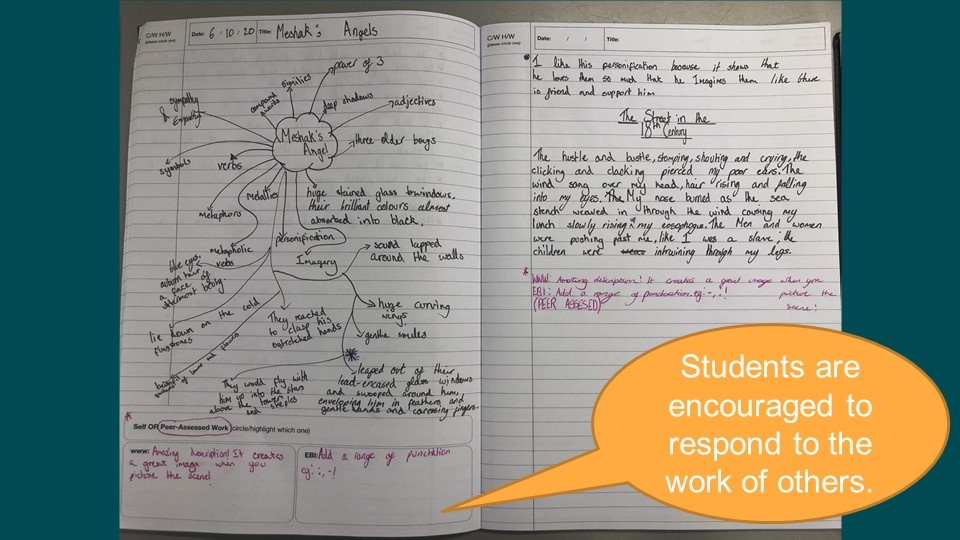 C/W H/W
(please circle one)
Date: 6 / 10 / 20 Title: Meshak's Angels
power of 3
similies
compound words
deep shadows
adjectives
sympathy & Empathy
Meshak's Angel
three older boys
symbols
verbs
Modifies
metaphors
huge stained glass windows,
their brilliant colours almost
absorbed into black.
personification
Imagery
sound lapped
around the walls
metaphoric
verbs
blue eyes,
auborn hair
a face of
uttermost beauty.
lie down on the cold
flagstones
They reached
to clasp his
outretched hands
huge curving
wings
gentle smiles
They would fly with
him up into the stars
above the towers
and steeples
leaped out of their
lead-encased glass windows
and swooped around him,
enveloping him in feathers, and
gentle hands and caressing fingers.
Self OR Peer-Assessed Work (circle/highlight which one)
www: Amazing description! It creates
a great image when you
picture the scene!
EBI: Add a range of punctation
eg: ;, -!
C/W H/W
(please circle one)
Date: / / Title:
I like this personification because it shows that
he loves them so much that he Imagines them like there
is friend and support him
The Street in the
18th Century
The hustle and bustle, stomping, shouting and crying, the
clicking and clacking pierced my poor ears. The
wind song over my head, hair rising and falling
into my eyes. The My nose burned as the sea
stench weaved in through the wind causing my
lunch slowly rising in my eosophogus. The Men and women
were pushing past me, like I was a slave; the
children were intruining through my legs.
WWW: Amazing description! It creates a great image when you
picture the
scene!
EBI: Add a range of punctuation. eg: -, . !
(PEER ASSESED)
Students are
encouraged to
respond to the
work of others.